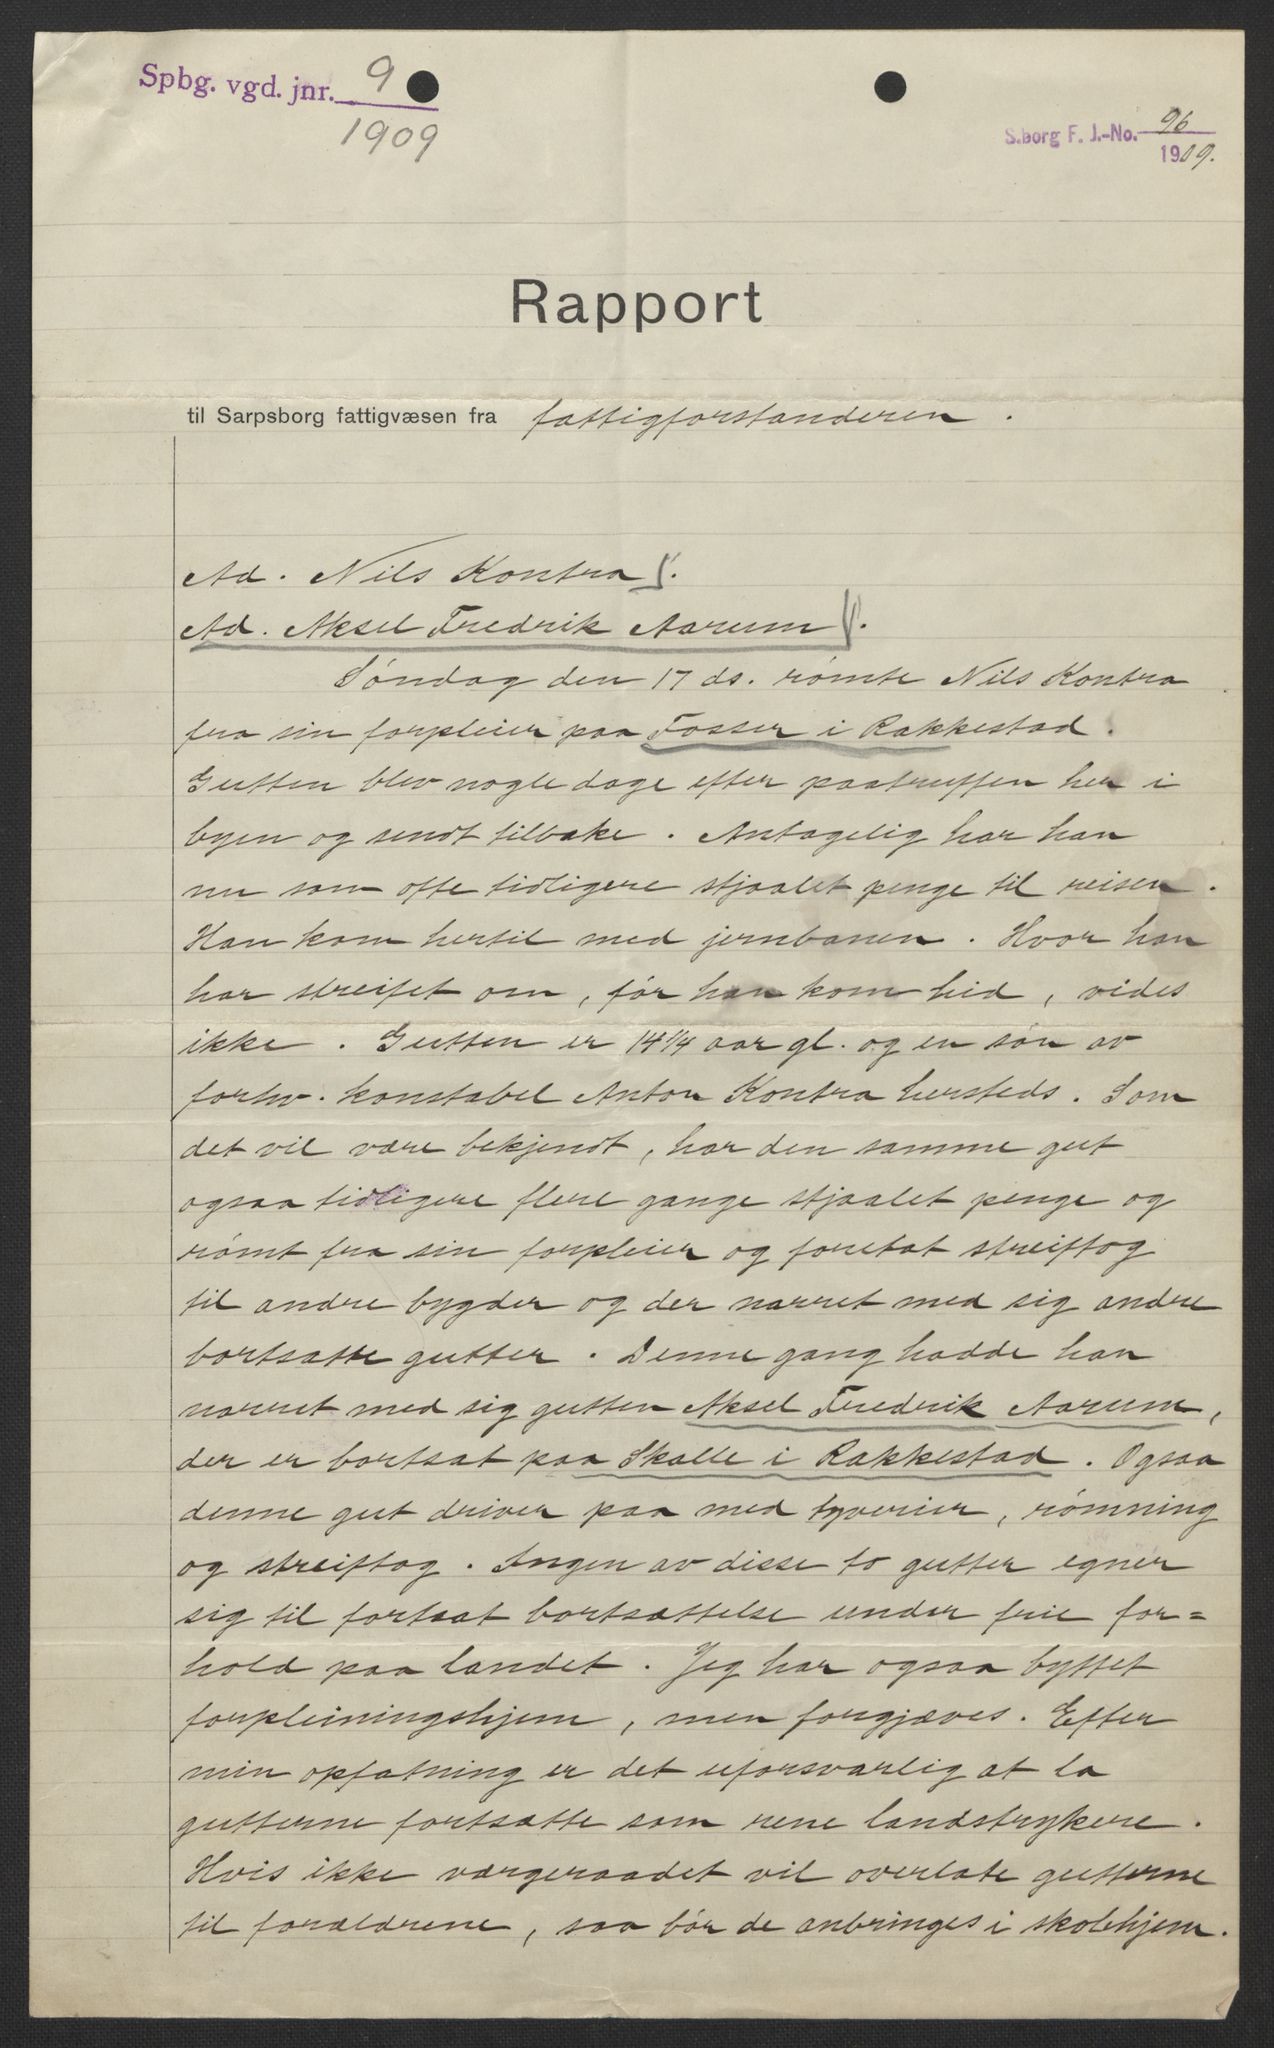 Spbg. vgd. jnr. 9
1909
S.borg F. J.-No. 96
1909.
Rapport
til Sarpsborg fattigvæsen fra fattigforstanderen.
Ad. Nils Kontra.
Ad. Aksel Fredrik Aarum.
Søndag den 17 ds. rømte Nils Kontra
fra sin forpleier paa Fosser i Rakkestad.
Gutten blev nogle dage efter paatruffen her i
byen og sendt tilbake. Antagelig har han
nu som ofte tidligere stjaalet penge til reisen.
Han kom hertil med jernbanen. Hvor han
har streifet om, før han kom hid, vides
ikke. Gutten er 14 1/4 aar gl. og en søn av
forhv. konstabel Anton Kontra hersteds. Som
det vil være bekjendt, har den samme gut
ogsaa tidligere flere gange stjaalet penge og
rømt fra sin forpleier og foretat streiftog
til andre bygder og der narret med sig andre
bortsatte gutter. Denne gang hadde han
narret med sig gutten Aksel Fredrik Aarum,
der er bortsat paa Skalle i Rakkestad. Ogsaa
denne gut driver paa med tyverier, rømning
og streiftog. Ingen av disse to gutter egner
sig til fortsat bortsættelse under frie for=
hold paa landet. Jeg har ogsaa byttet
forpleiningshjem, men forgjæves. Efter
min opfatning er det uforsvarlig at la
gutterne fortsætte som rene landstrykere.
Hvis ikke værgeraadet vil overlate gutterne
til forældrene, saa bør de anbringes i skolehjem.